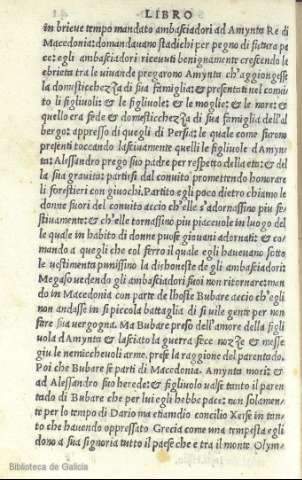 LIBRO
in breue tempo mandato ambasciadori ad Amynta Re di
Macedonia: domandauano stadichi per pegno di futura pa
ce: egli ambasciadori riceuuti benignamente crescendo la
ebrieta tra le uiuande pregarono Amynta ch'aggiongesse
la domestichezza di sua famiglia: & presentati nel conui
to li figliuoli: & le figliuole: & le moglie: & le nore: &
quello era fede & domestichezza di sua famiglia dell'al
bergo: appresso di quegli di Persia: le quale come furono
presenti toccando lasciuamente quelli le figliuole d'Amyn
ta: Alessandro prego suo padre per respetto della eta: & del
la sua grauita: partisi dal conuito promettendo honorare
li forestieri con giuochi. Partito egli poco dietro chiamo le
donne fuori del conuito accio ch'elle s'adornassino piu fe-
stiuamente: & ch'elle tornassino piu piaceuole in luogo del
le quale in habito di donne puose giouani adornati: & co-
mando a quegli che col ferro il quale egli haueuano sotto
le uestimenta punissino la dishoneste de gli ambasciadori:
Megaso uedendo gli ambasciadori suoi non ritornare: man-
do in Macedonia con parte de lhoste Bubare accio ch'egli
non andasse in si piccola battaglia di si uile gente per non
sua uergogna. Ma Bubare preso dell'amore della figli
uola d'Amynta & lasciato la guerra fece nozze & messe
giu le nemicheuoli arme, prese la raggione del parentado.
Poi che Bubare se parti di Macedonia. Amynta mori: &
ad Alessandro suo herede: & figliuolo ualse tanto il paren
tado di Bubare che per lui egli hebbe pace: non solamen-
te per lo tempo di Dario ma etiamdio concilio Xerse in tan-
to che hauendo oppressato Grecia come una tempesta egli
dono a sua signoria tutto il paese che e tra il monte Olym-
Biblioteca de Galicia